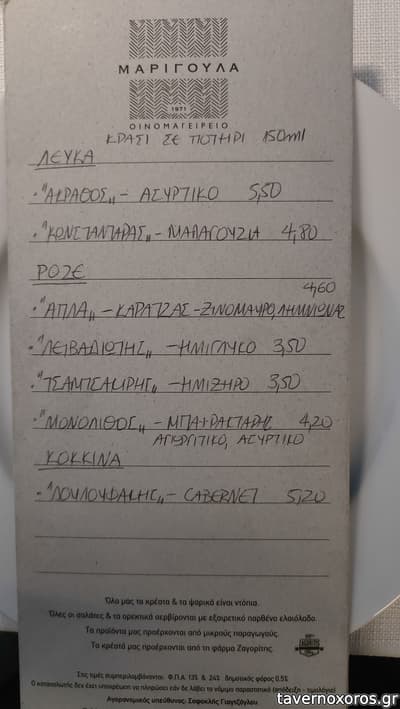 ΜΑΡΙΓΟΥΛΑ
1971
ΟΙΝΟΜΑΓΕΙΡΕΙΟ
ΚΡΑΣΙ ΣΕ ΠΟΤΗΡΙ 150ml
ΛΕΥΚΑ
• "ΑΚΡΑΘΟΣ" - ΑΣΥΡΤΙΚΟ 5,50
• "ΚΩΝΣΤΑΝΤΑΡΑΣ" - ΜΑΛΑΓΟΥΖΙΑ 4,80
ΡΟΖΕ
4,60
• "ΑΠΛΑ" - ΚΑΡΑΤΖΑΣ - ΞΙΝΟΜΑΥΡΟ, ΛΗΜΝΙΩΝΑΣ
• "ΛΕΙΒΑΔΙΩΤΗΣ" - ΗΜΙΓΛΥΚΟ 3,50
• "ΤΣΑΜΠΣΑΚΙΡΗΣ" - ΗΜΙΞΗΡΟ 3,50
• "ΜΟΝΟΛΙΘΟΣ" - ΜΠΑΙΡΑΚΤΑΡΗΣ 4,20
ΑΓΙΩΡΓΙΤΙΚΟ, ΑΣΥΡΤΙΚΟ
ΚΟΚΚΙΝΑ
• "ΛΟΥΛΟΥΦΑΚΗΣ" - CABERNET 5,20
Όλα μας τα κρέατα & τα ψαρικά είναι ντόπια.
Όλες οι σαλάτες & τα ορεκτικά σερβίρονται με εξαιρετικό παρθένο ελαιόλαδο.
Τα προϊόντα μας προέρχονται από μικρούς παραγωγούς.
Τα κρέατά μας προέρχονται από τη φάρμα Ζαγορίτης.
Στις τιμές συμπεριλαμβάνονται: Φ.Π.Α 13% & 24% δημοτικός φόρος 0,5%
Ο καταναλωτής δεν έχει υποχρέωση να πληρώσει εάν δε λάβει το νόμιμο παραστατικό (απόδειξη - τιμολόγιο)
Αγορανομικός υπεύθυνος: Σοφοκλής Γιαγτζόγλου
tavernoxoros.gr